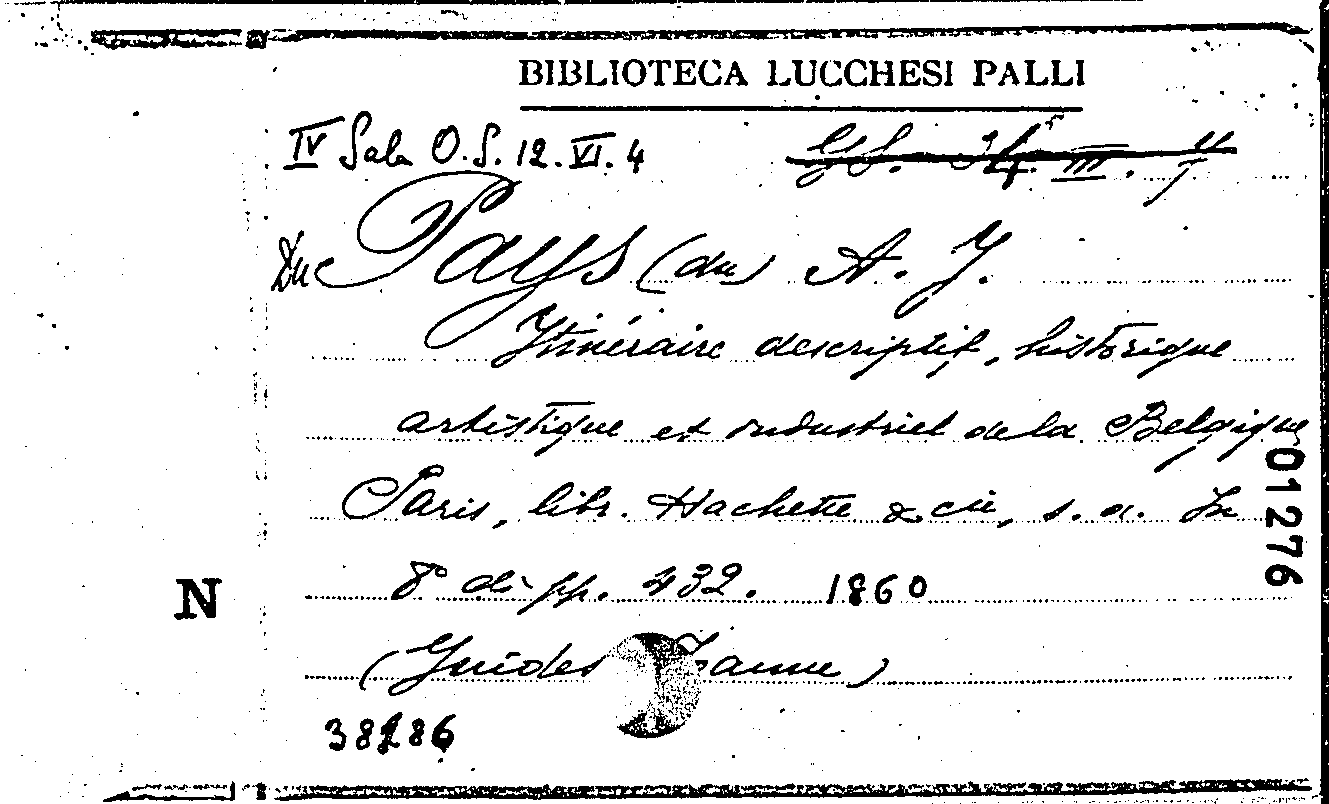 BIBLIOTECA LUCCHESI PALLI
IV Sala O.S. 12. VI. 4
Du Pays (du) A. J.
Itinéraire descriptif, historique
artistique et industriel de la Belgique
Paris, libr. Hachette & cie, s. a. In
8° di pp. 432. 1860
(Guides Joanne)
38286
N
01276